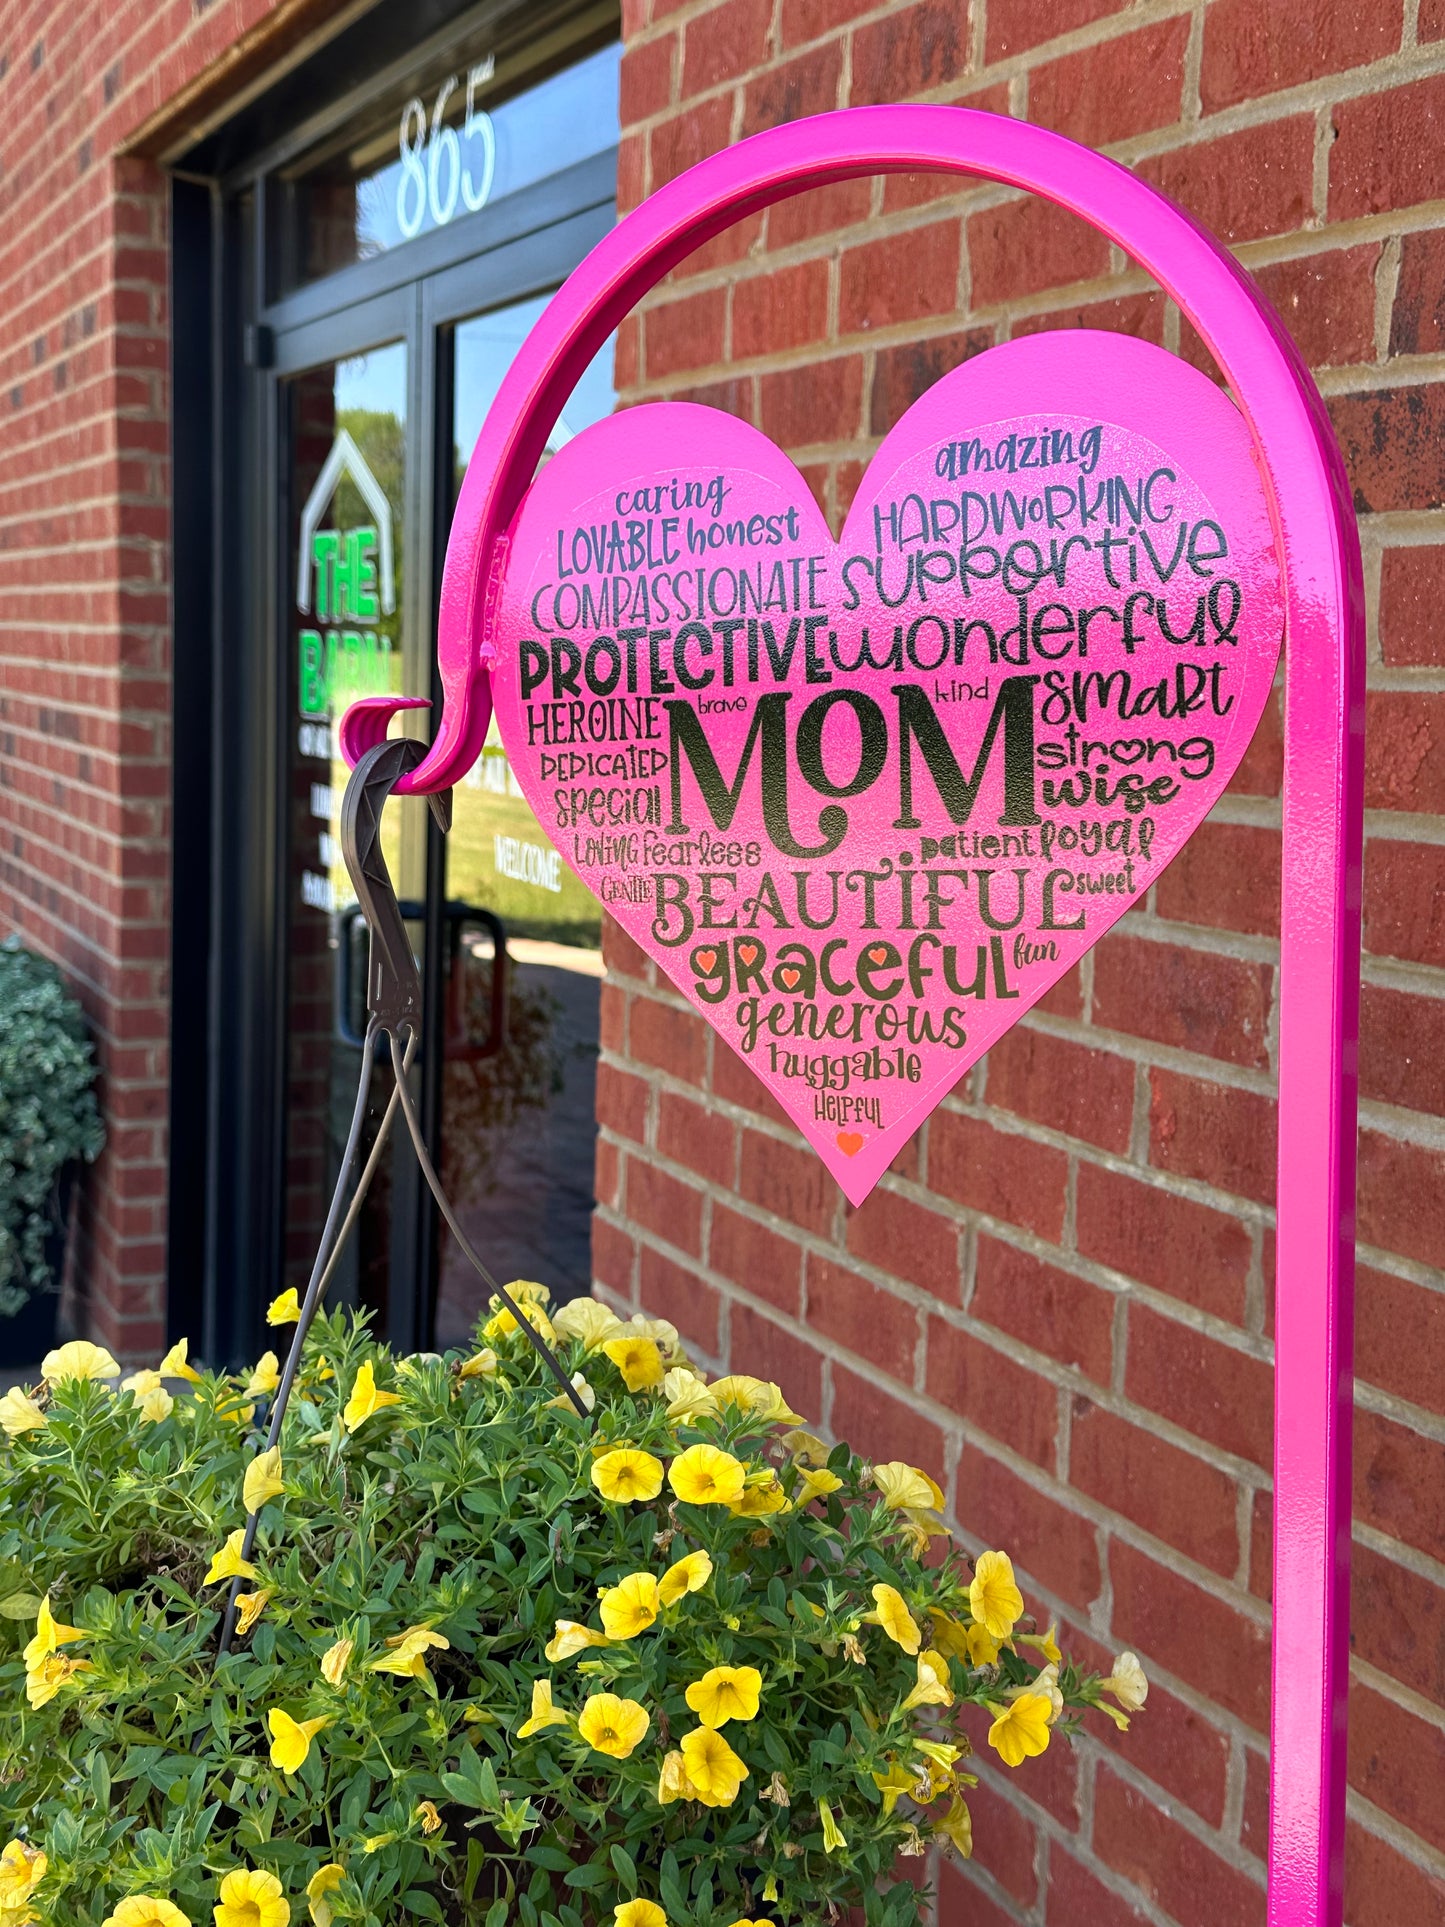 865
THE
BARN
WELCOME
amazing
caring
HARDWORKING
LOVABLE honest
supportive
COMPASSIONATE
PROTECTIVE wonderful
HEROINE brave MOM kind smart
DEDICATED strong
special wise
Loving fearless patient loyal
GENTLE BEAUTIFUL sweet
graceful fun
generous
huggable
HELPFUL